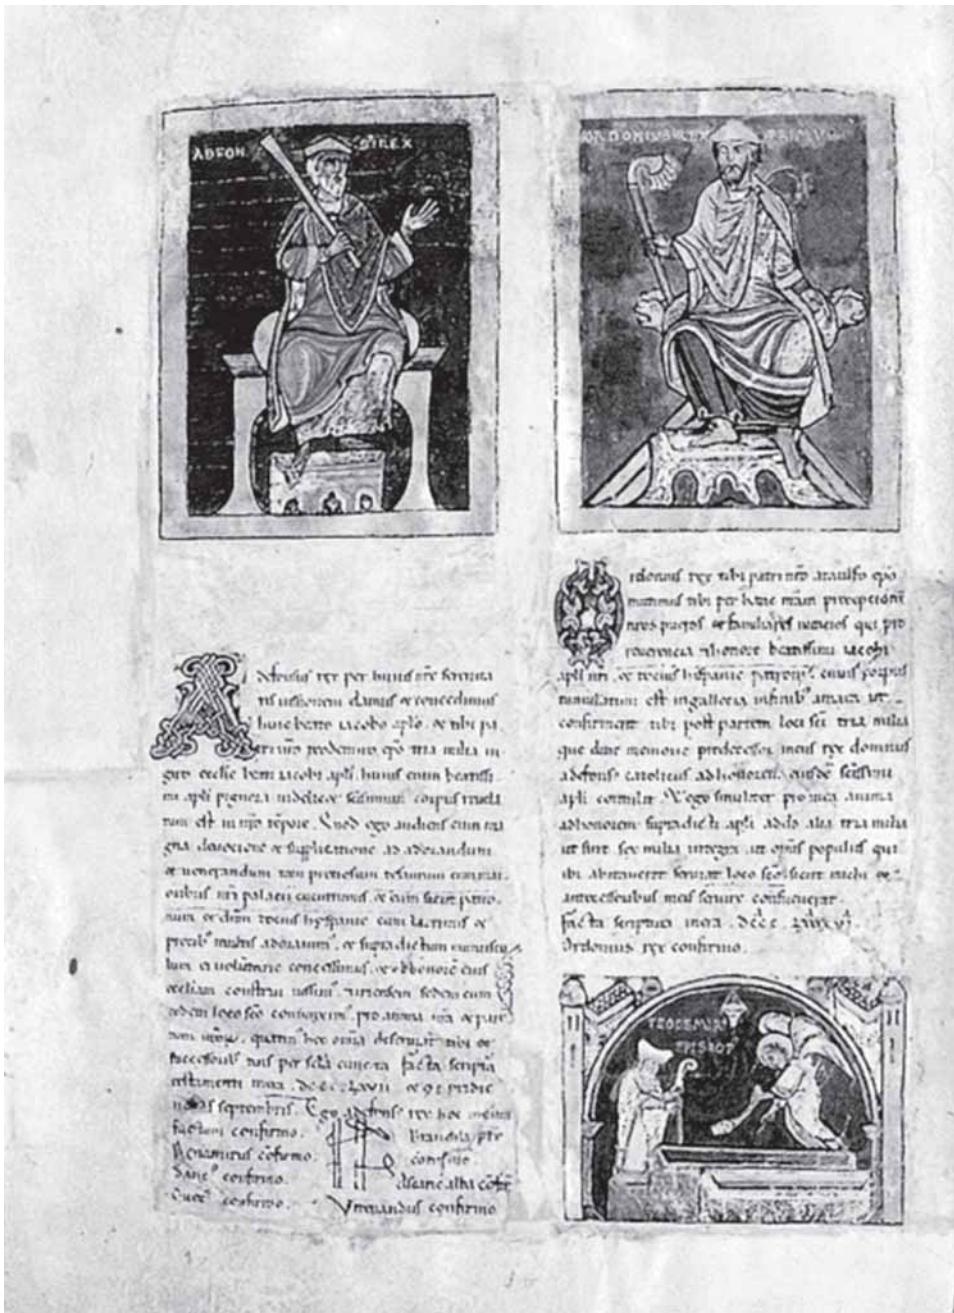 ADFON SꝰREX
defonsus rex per huius nr̄e serenita
tis iussionem damus & concedimus
huic beato iacobo aplo. & tibi pa
tri nr̄o teodemiro ep̄o tria milia in
giro eccl̄ie beati iacobi apl̄i. huius enim beatissi
mi apl̄i pignora videlicet sc̄issimum corpus revela
tum est in nr̄o tēpore. Quod ego audiens cum ma
gna devocione & supplicatione ad adorandum
& venerandum tam preciosum tesaurum cum mai
oribus nr̄i palacii cucurrimus. & eum sicut patro
num & dn̄m tocius hyspanie cum lacrimis &
precibꝰ multis adoravimꝰ. & supradictum munuscu
lum ei voluntarie concessimus. & ob honorē eius
eccl̄iam construi iussimꝰ. & iriensem sedem cum
eodem loco sc̄o coniunximꝰ. pro anima mea & paren
tum meorum. quatinꝰ hec omia deserviant tibi &
successoribꝰ tuis per sc̄la cuncta. facta scriptura
testamenti in era. DCCC.LXVII & qt pridie
nonas septembris. Ego adefonsꝰ rex hoc meum
factum confirmo.
Ranamirus cōfirmo.
Sanciꝰ confirmo.
confirmo.
Brandila pr̄r
confirmo.
Ascaric abba cōfr̄
confirmo
ORDONIUS REX PRIMUS
rdonius rex tibi patri nr̄o ataulfo ep̄o
mittimus tibi per hanc nr̄am precepcionē
nros pueros & familiares noticios qui pro
reverencia & honore beatissimi iacobi
apl̄i nr̄i. & tocius hispanie patroni. cuius corpus
tumulatum est in gallecia infinibꝰ amaea ut
confirment tibi post partem loci sc̄i tria milia
que dive memorie predecessor meus rex domnus
adefonsꝰ catolicus ad honorē. eiusdē sc̄issimi
apl̄i contulit. & ego similiter pro mea anima
ad honorem supradicti apl̄i addo alia tria milia
ut sint sex milia integra. ut om̄s populus qui
ibi abitaverit serviat loco sc̄o. sicut michi &
antecessoribus meis servire consueverat.
facta scriptura in era. DCCC.LXXXXII.
Ordonius rex confirmo.
TEODEMIRꝰ
EPISKOP